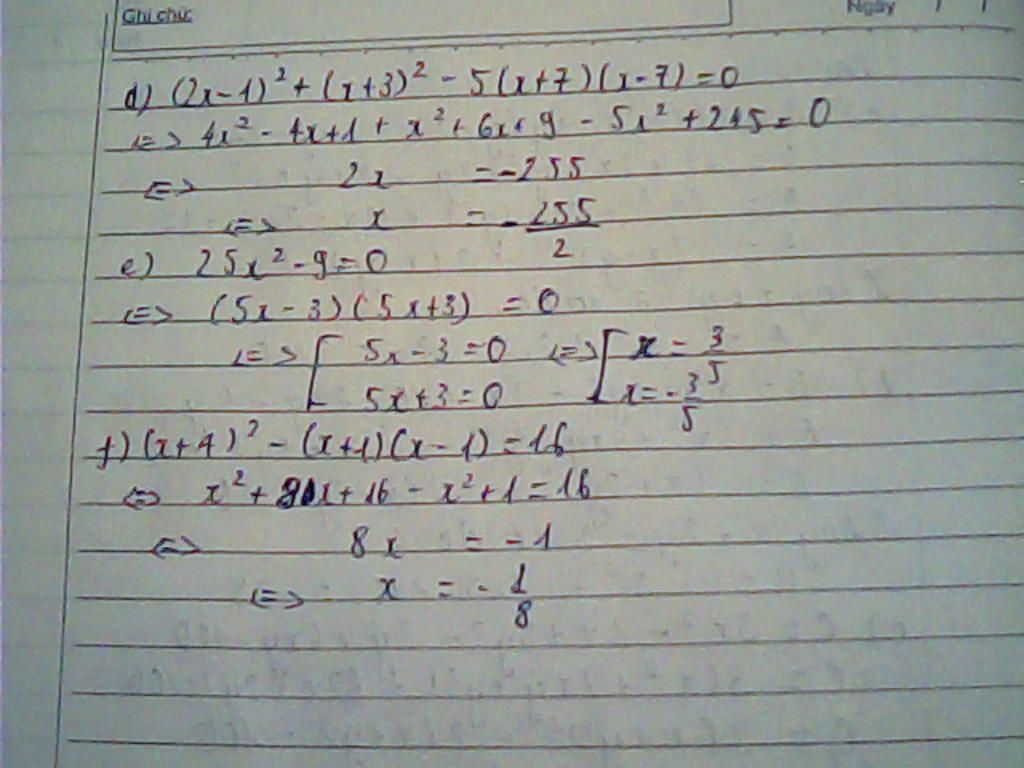 Ghi chú:
Ngày / /
d) (2x-1)² + (x+3)² - 5(x+7)(x-7) = 0
<=> 4x² - 4x+1 + x² + 6x+9 - 5x² + 245 = 0
<=> 2x = -255
<=> x = -255/2
e) 25x² - 9 = 0
<=> (5x-3)(5x+3) = 0
<=> [ 5x-3 = 0 <=> [ x = 3/5
5x+3 = 0 x = -3/5
f) (x+4)² - (x+1)(x-1) = 16
<=> x² + 8x + 16 - x² + 1 = 16
<=> 8x = -1
<=> x = -1/8